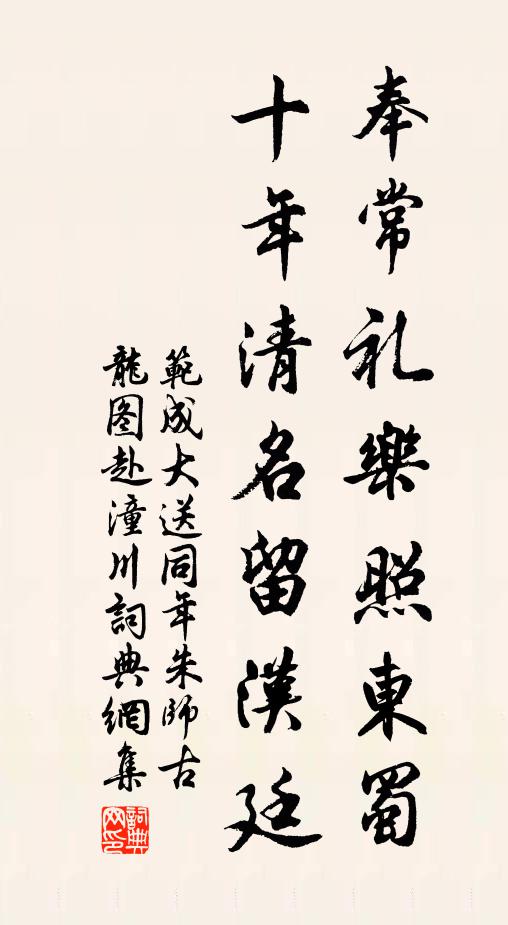 奉常礼樂照東蜀
十年清名留漢廷
範成大送同年朱師古
龍图赴潼川詞典網集
詞典网印